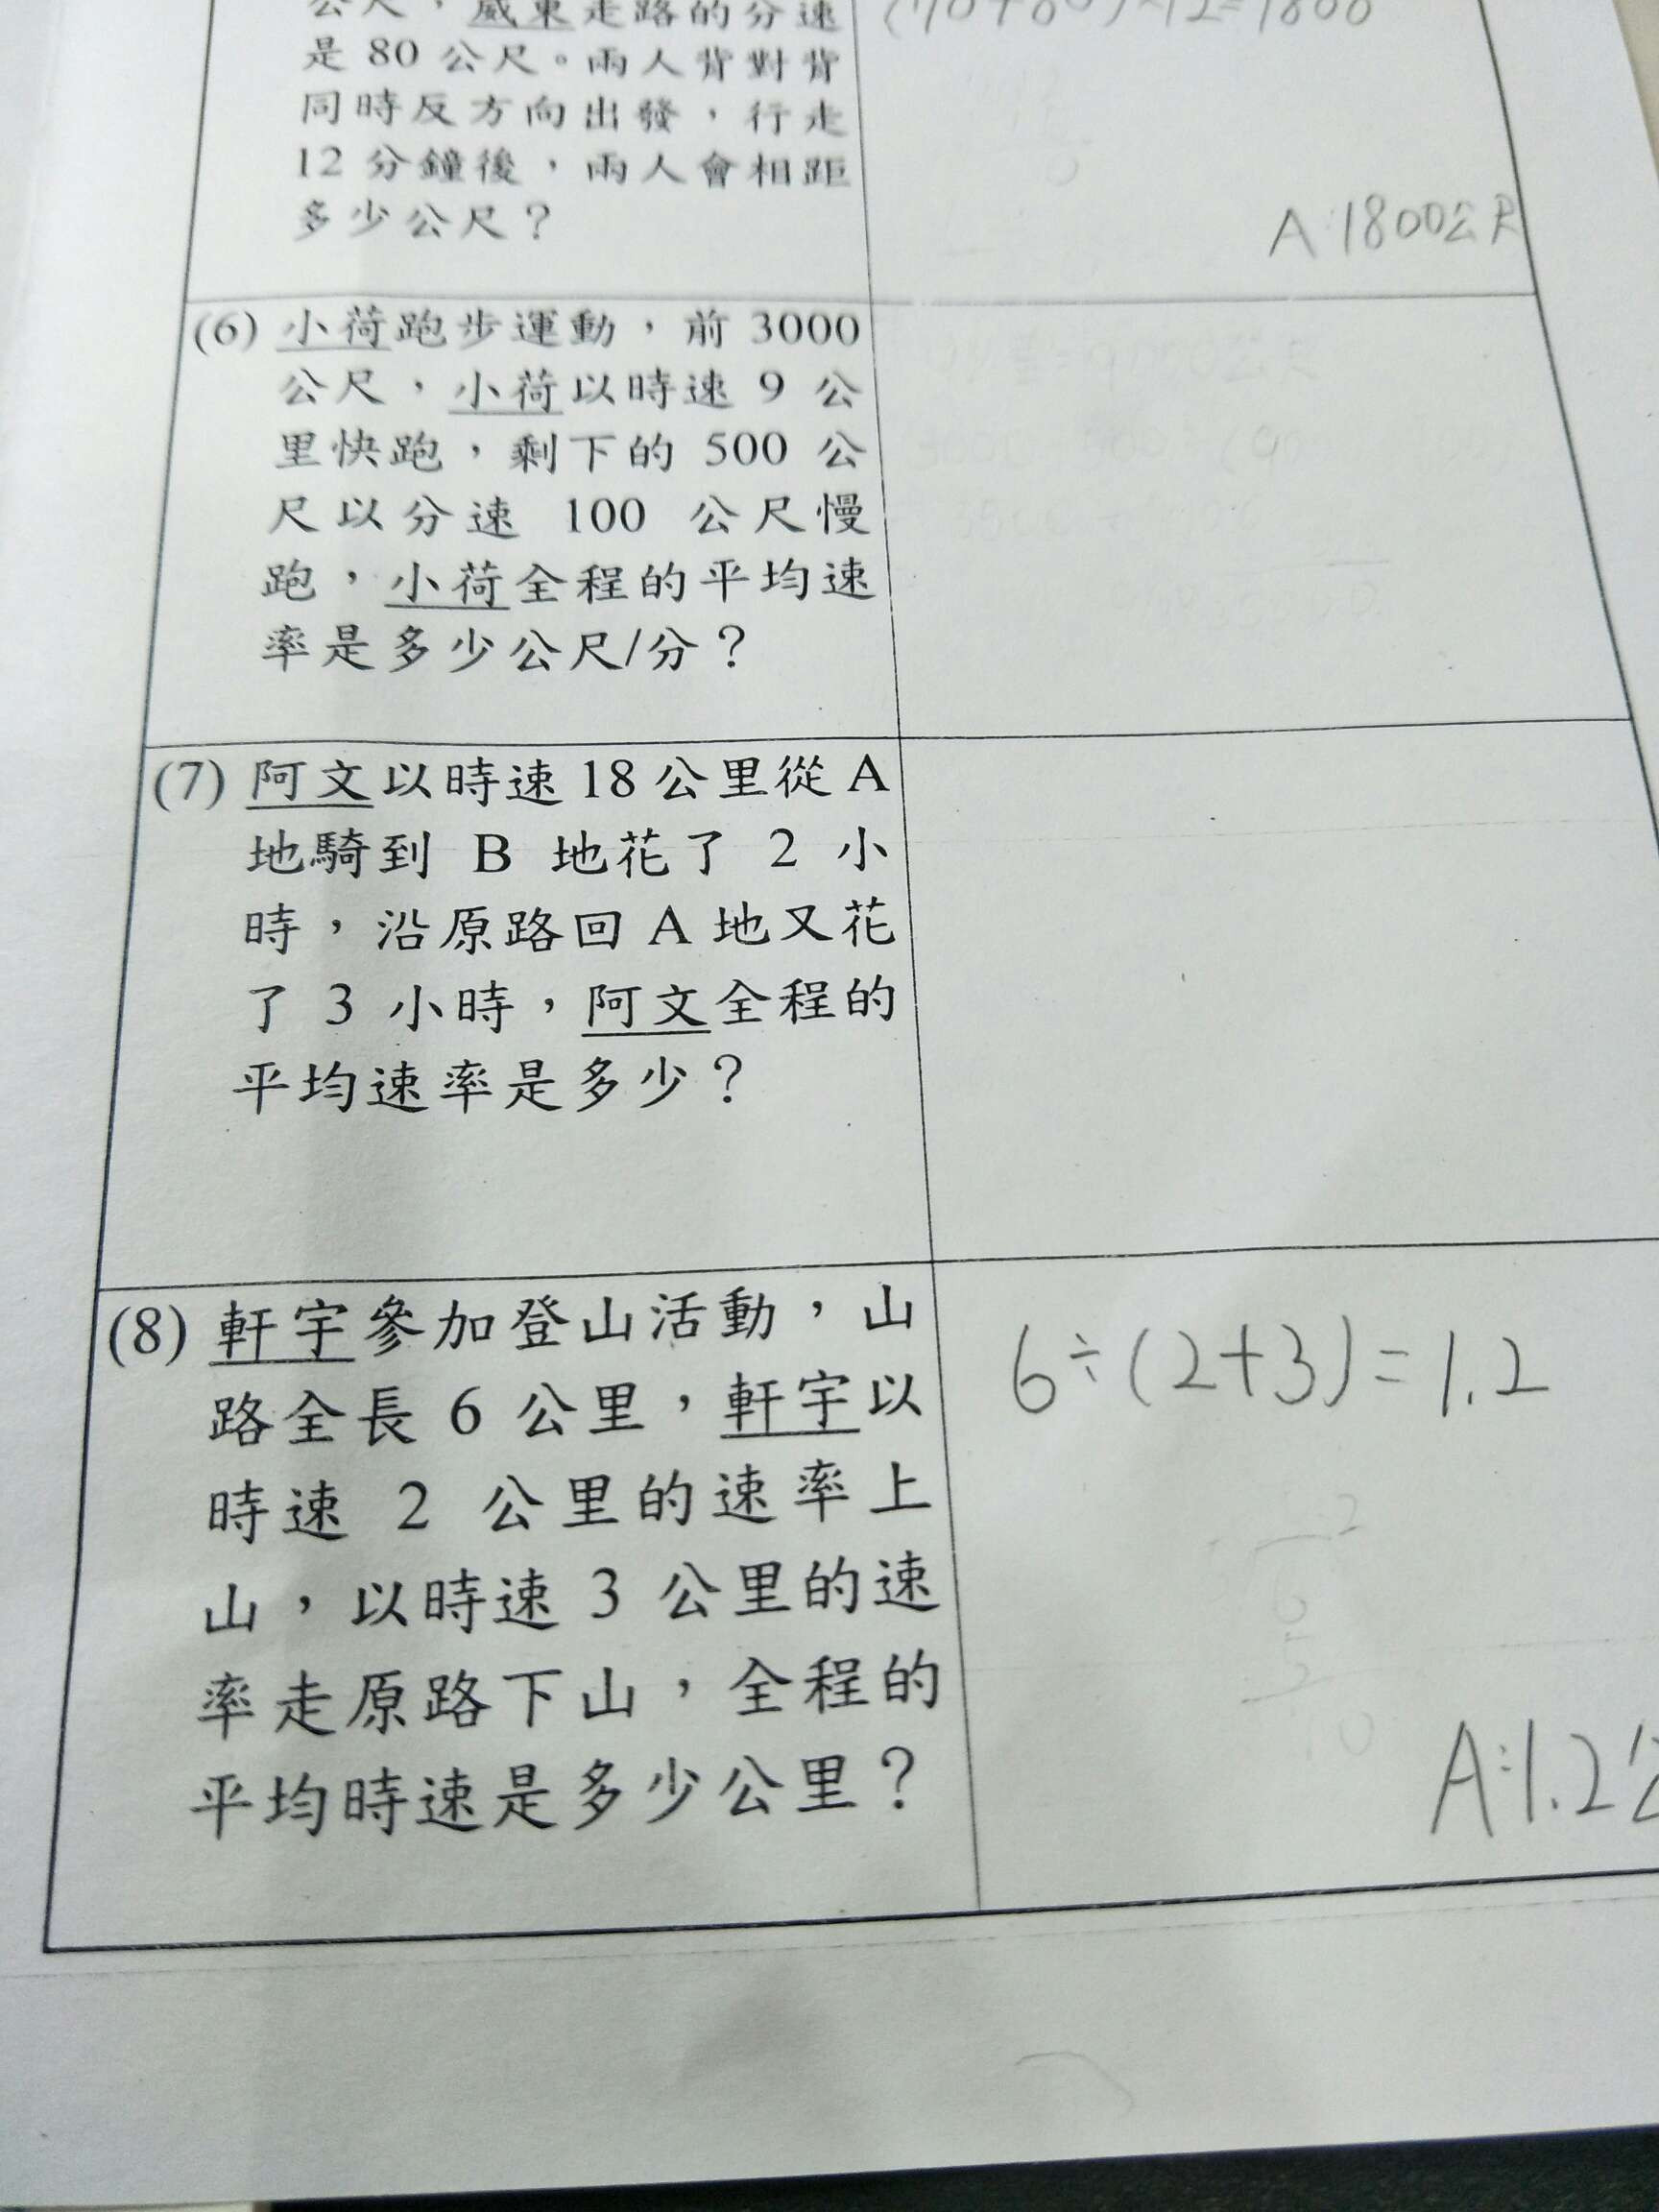 公尺，威東走路的分速
是 80 公尺。兩人背對背
同時反方向出發，行走
12 分鐘後，兩人會相距
多少公尺？
A:1800公尺
(6) 小荷跑步運動，前 3000
公尺，小荷以時速 9 公
里快跑，剩下的 500 公
尺以分速 100 公尺慢
跑，小荷全程的平均速
率是多少公尺/分？
(7) 阿文以時速 18 公里從 A
地騎到 B 地花了 2 小
時，沿原路回 A 地又花
了 3 小時，阿文全程的
平均速率是多少？
(8) 軒宇參加登山活動，山
路全長 6 公里，軒宇以
時速 2 公里的速率上
山，以時速 3 公里的速
率走原路下山，全程的
平均時速是多少公里？
6÷(2+3)=1.2
A:1.2